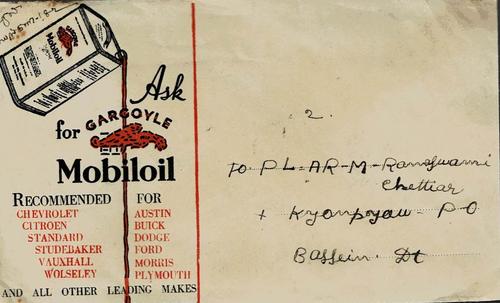 GARGOYLE
Mobiloil
Ask
for GARGOYLE
Mobiloil
RECOMMENDED FOR
CHEVROLET AUSTIN
CITROEN BUICK
STANDARD DODGE
STUDEBAKER FORD
VAUXHALL MORRIS
WOLSELEY PLYMOUTH
AND ALL OTHER LEADING MAKES
2.
To P-L-AR-M-Ramaswami
Chettiar
Kyonpyaw P-O
Bassein Dt